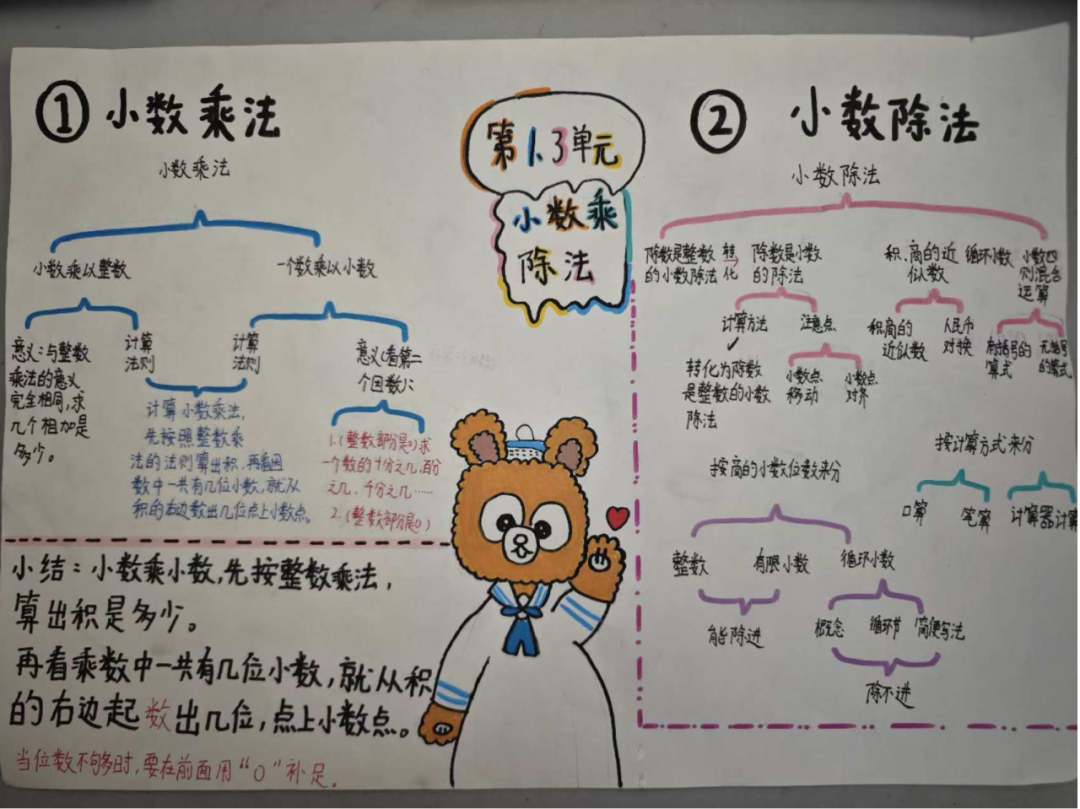 ① 小数乘法
小数乘法
小数乘以整数
一个数乘以小数
意义:与整数
乘法的意义
完全相同,求
几个相加是
多少。
计算
法则
计算
法则
意义(看第二
个因数):
计算小数乘法,
先按照整数乘
法的法则算出积,再看因
数中一共有几位小数,就从
积的右边数出几位点上小数点。
1.(整数部分是0)求
一个数的十分之几、百分
之几、千分之几……
2.(整数部分是0)
小结:小数乘小数,先按整数乘法,
算出积是多少。
再看乘数中一共有几位小数,就从积
的右边起数出几位,点上小数点。
当位数不够时,要在前面用“0”补足。
第1.3单元
小数乘
除法
② 小数除法
小数除法
除数是整数
的小数除法
转
化
除数是小数
的除法
积、商的近
似数
循环小数
小数四
则混合
运算
计算方法
注意点
转化为除数
是整数的小数
除法
小数点
移动
小数点
对齐
积商的
近似数
人民币
对换
有括号的
算式
无括号
的算式
按商的小数位数来分
整数
有限小数
循环小数
能除进
概念
循环节
简便写法
除不进
按计算方式来分
口算
笔算
计算器计算